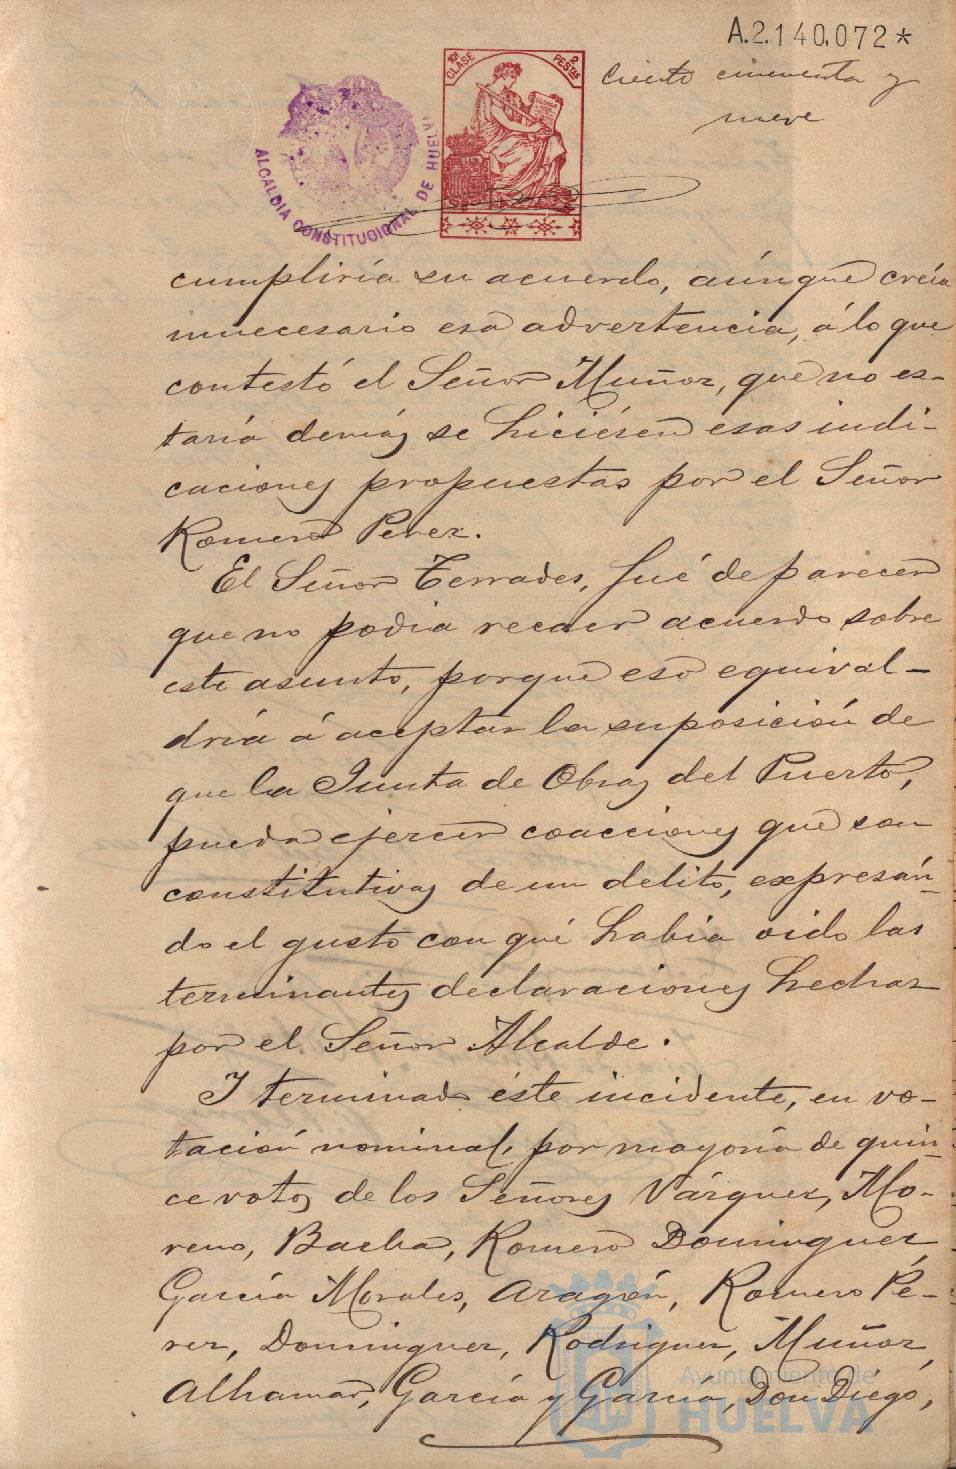 A.2.140.072*
Ciento cincuenta y
nueve
10ª CLASE
2 PESTAS
ALCALDIA CONSTITUCIONAL DE HUELVA
cumpliría su acuerdo, aúnque creía
innecesario esa advertencia, á lo que
contestó el Señor Muñoz, que no es-
taría demás se hiciésen esas indi-
caciones propuestas por el Señor
Romero Perez.
El Señor Terrades, fué de parecer
que no podia recaer acuerdo sobre
este asunto, porque eso equival-
dría á aceptar la suposición de
que la Junta de Obras del Puerto,
pueda ejercer coacciones que son
constitutivas de un delito, expresán-
do el gusto con qué habia oido las
terminantes declaraciones hechas
por el Señor Alcalde.
Y terminado éste incidente, en vo-
tación nominal, por mayoría de quin-
ce votos de los Señores Vázquez, Mo-
reno, Bacha, Romero Dominguez,
García Morales, Aragón, Romero Pé-
rez, Dominguez, Rodriguez, Muñoz,
Alhamar, García y García, Don Diego,
Ayuntamiento de
HUELVA